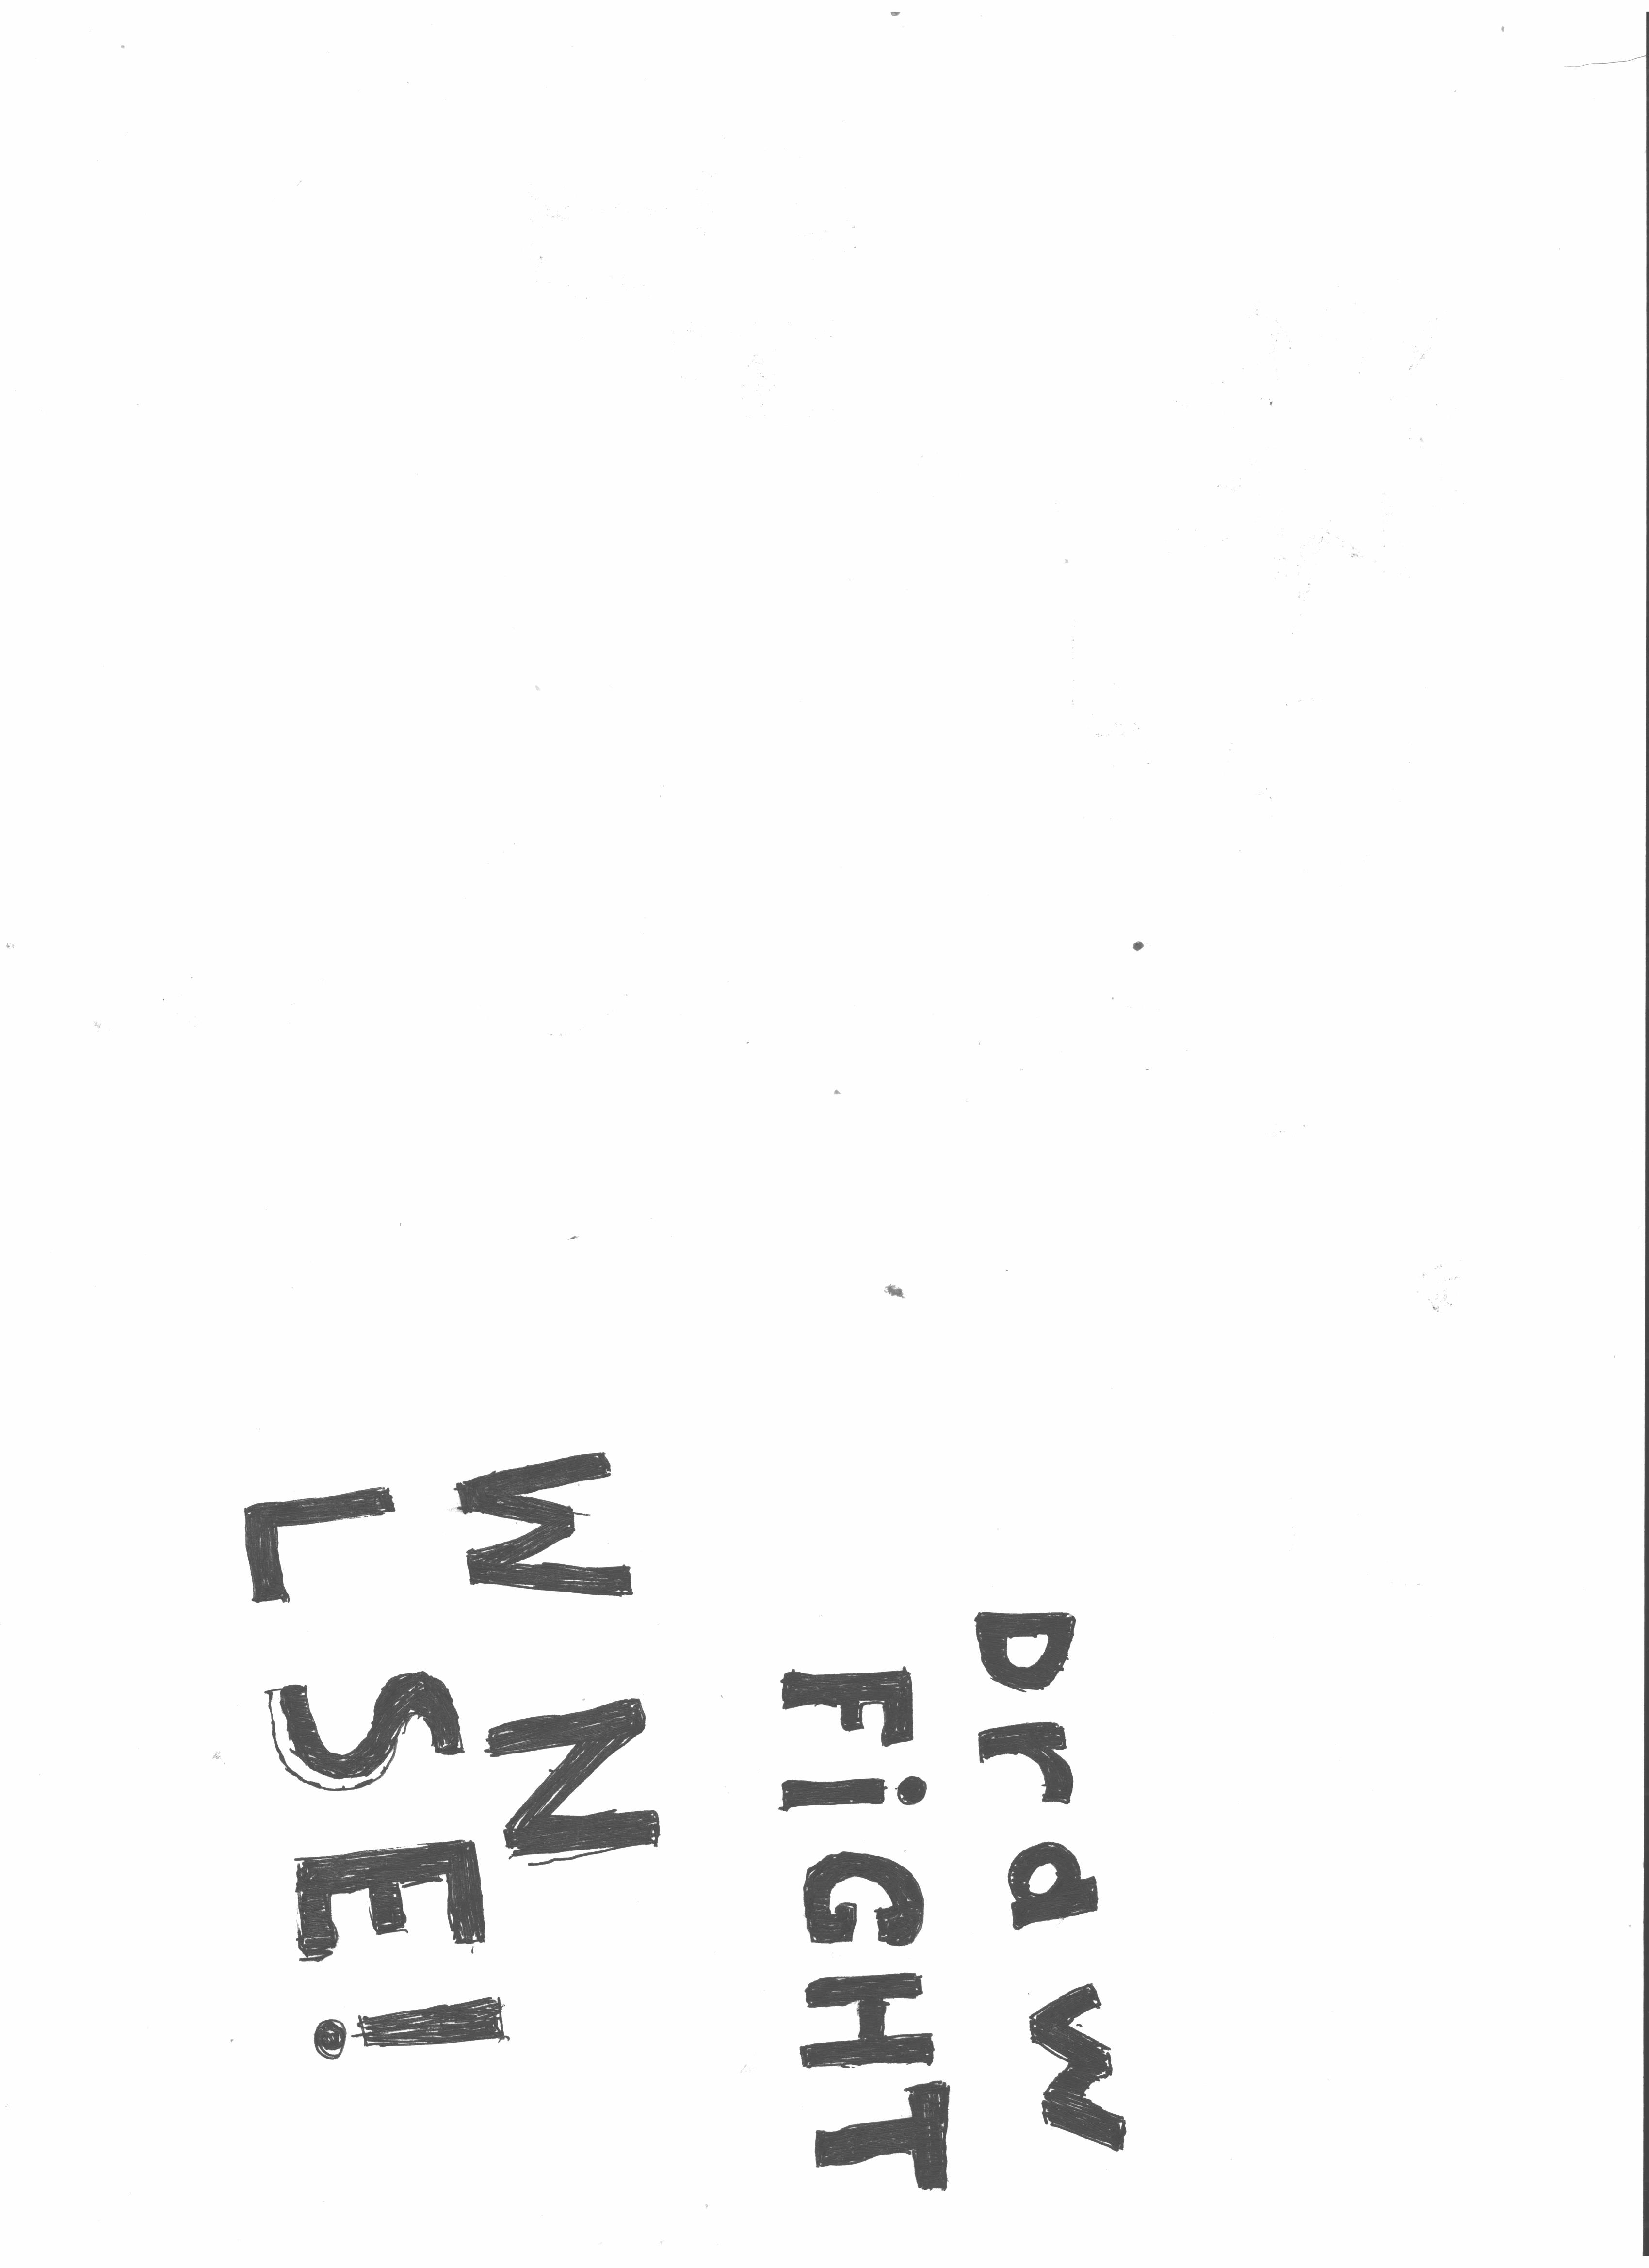 Draw
FiGHT
W N
L SE!